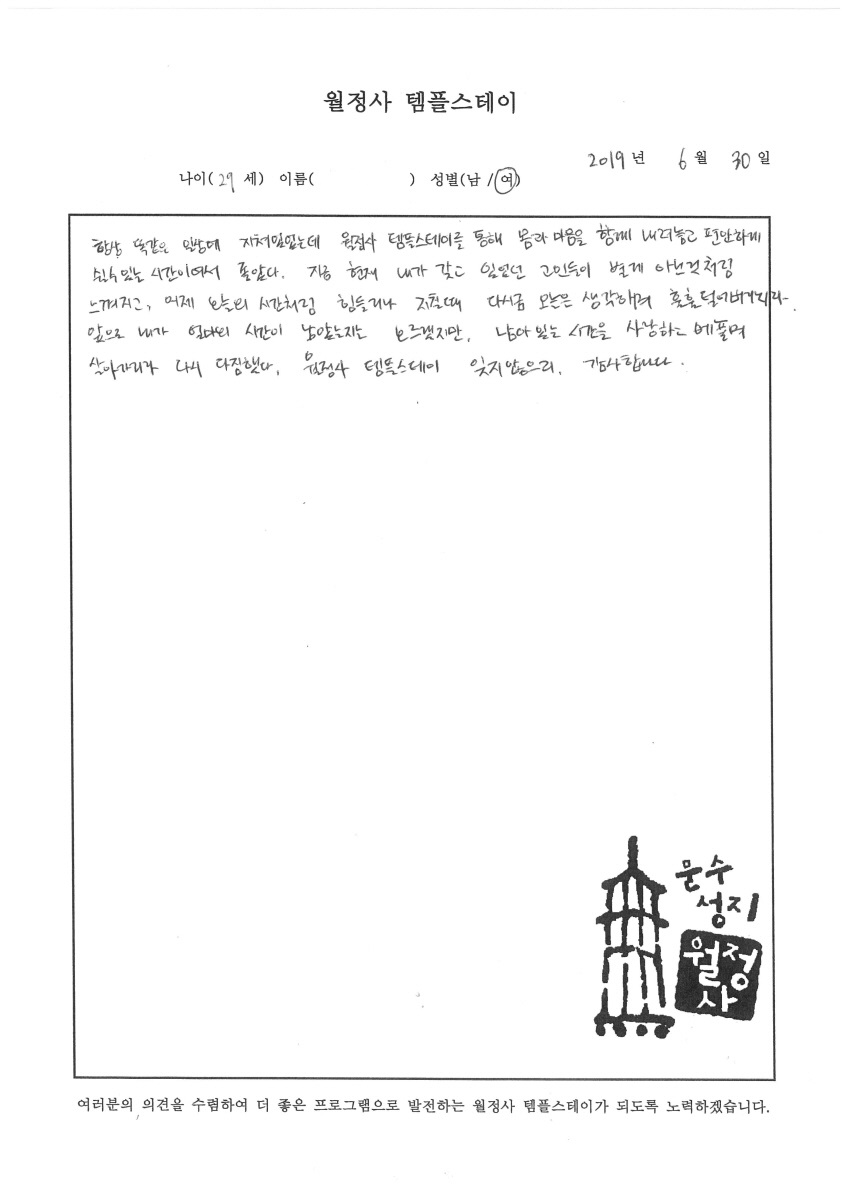 월정사 템플스테이
2019년 6월 30일
나이( 29 세) 이름( ) 성별(남 / 여)
항상 똑같은 일상에 지쳐있었는데 월정사 템플스테이를 통해 몸과 마음을 함께 내려놓고 편안하게
쉴수있는 시간이여서 좋았다. 지금 현재 내가 갖고 있었던 고민들이 별게 아닌것처럼
느껴지고, 어제 오늘의 시간처럼 힘들거나 지칠때 다시금 오늘은 생각하려 훌훌털어버리리라.
앞으로 내가 얼마의 시간이 남았는지는 모르겠지만, 남아 있는 시간을 사랑하고 베풀며
살아가리라 다시 다짐했다. 월정사 템플스테이 잊지않으리. 감사합니다.
문수
성지
월정
사
여러분의 의견을 수렴하여 더 좋은 프로그램으로 발전하는 월정사 템플스테이가 되도록 노력하겠습니다.